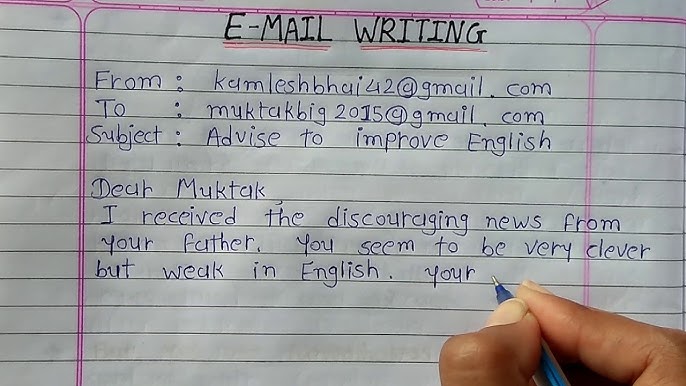 E-MAIL WRITING
From : kamleshbhai42@gmail.com
To : muktakbig2015@gmail.com
Subject : Advise to improve English
Dear Muktak,
I received the discouraging news from
your father. You seem to be very clever
but weak in English. Your